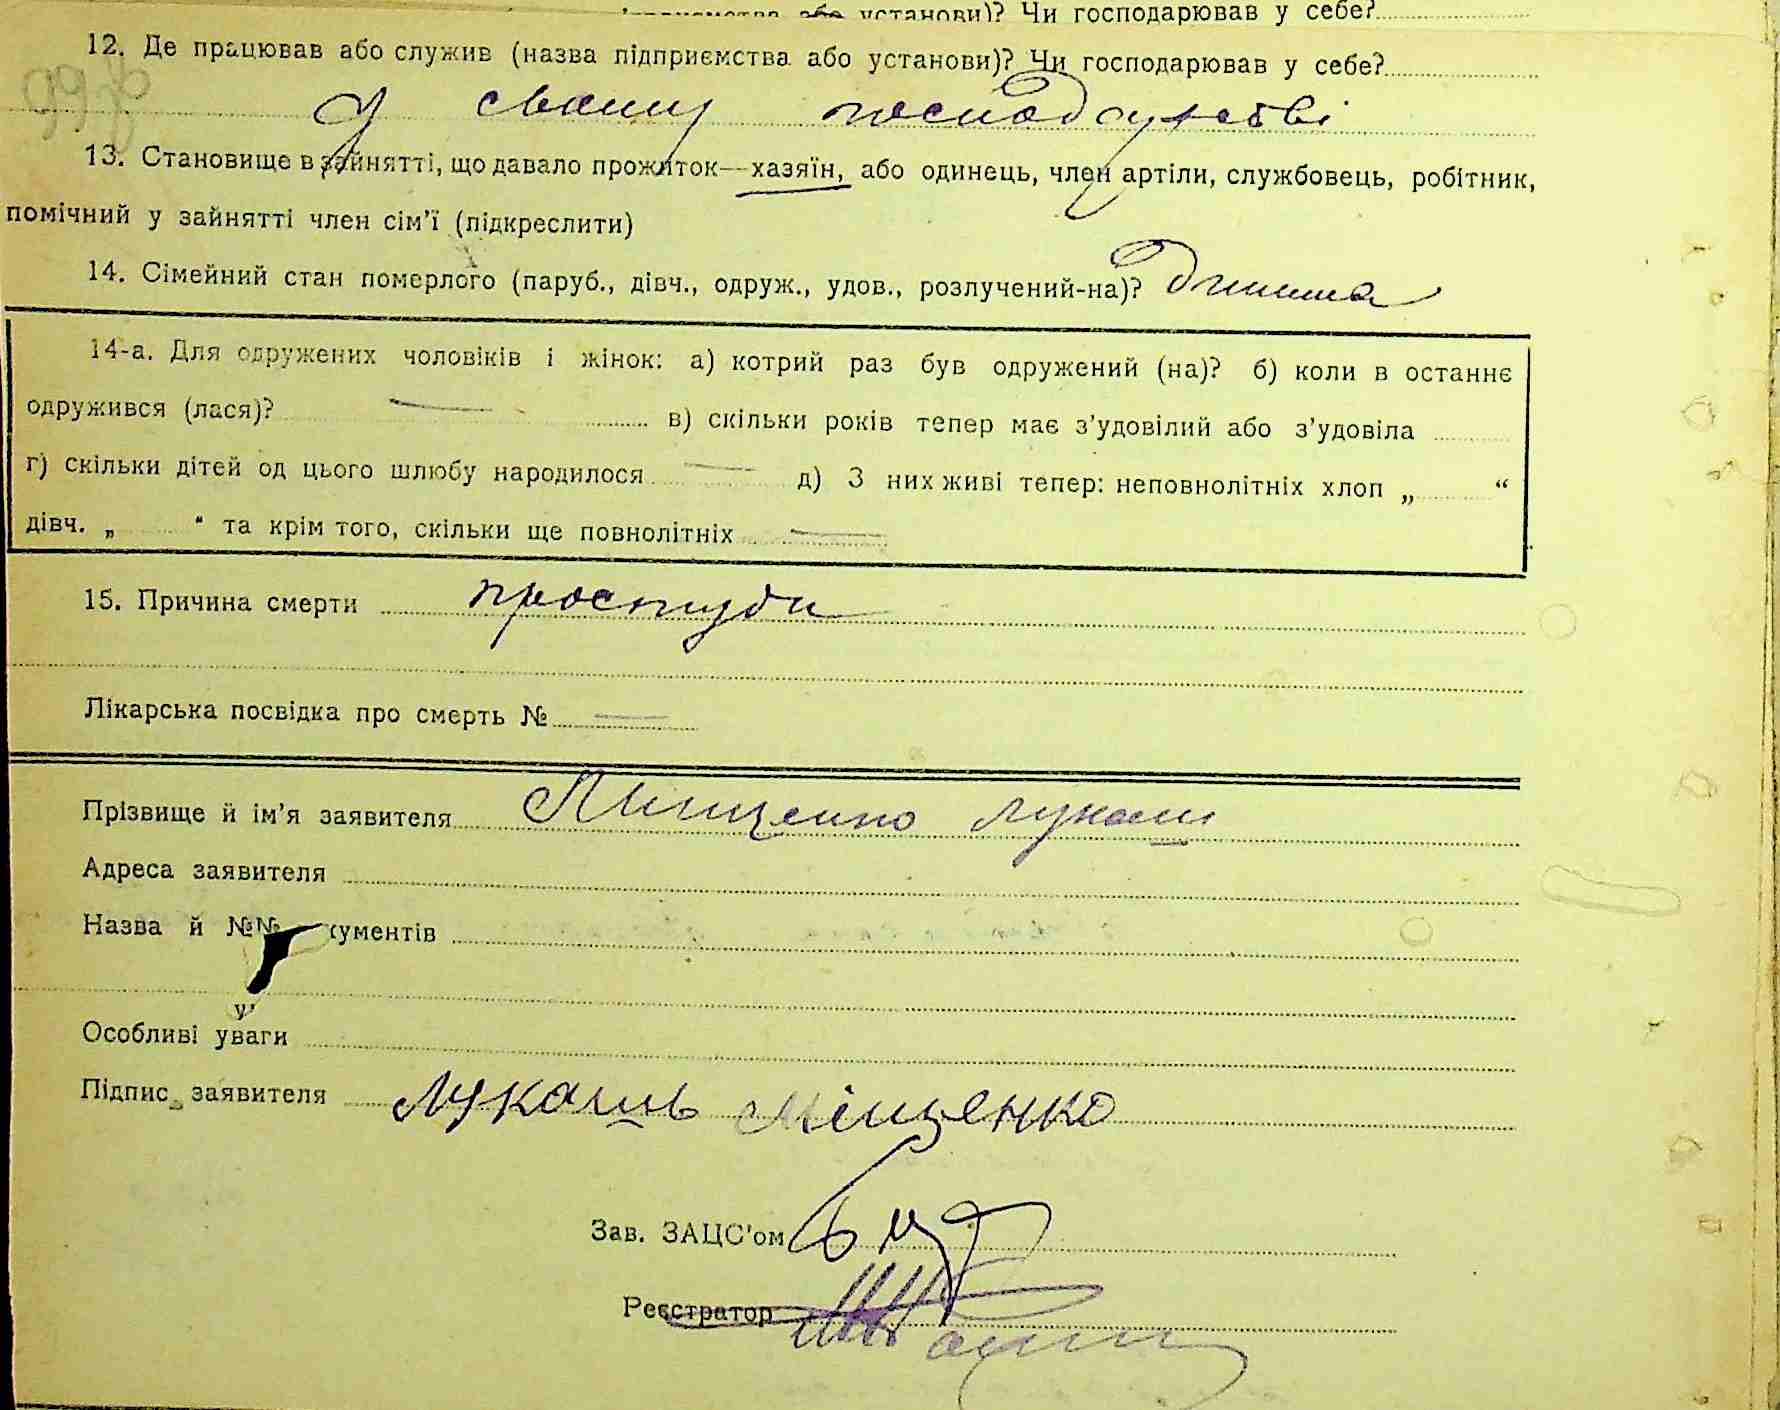 установи)? Чи господарював у себе?
12. Де працював або служив (назва підприємства або установи)? Чи господарював у себе?
У своему господарстві
13. Становище в зайнятті, що давало прожиток—хазяїн, або одинець, член артіли, службовець, робітник,
помічний у зайнятті член сім'ї (підкреслити)
14. Сімейний стан померлого (паруб., дівч., одруж., удов., розлучений-на)? Дитина
14-а. Для одружених чоловіків і жінок: а) котрий раз був одружений (на)? б) коли в останнє
одружився (лася)? в) скільки років тепер має з'удовілий або з'удовіла
г) скільки дітей од цього шлюбу народилося д) З них живі тепер: неповнолітніх хлоп „ “
дівч. „ “ та крім того, скільки ще повнолітніх
15. Причина смерти простуди
Лікарська посвідка про смерть №
Прізвище й ім'я заявителя Міщенко Лукаш
Адреса заявителя
Назва й №№ кументів
Особливі уваги
Підпис заявителя Лукашь Міщенко
Зав. ЗАЦС'ом
Реєстратор